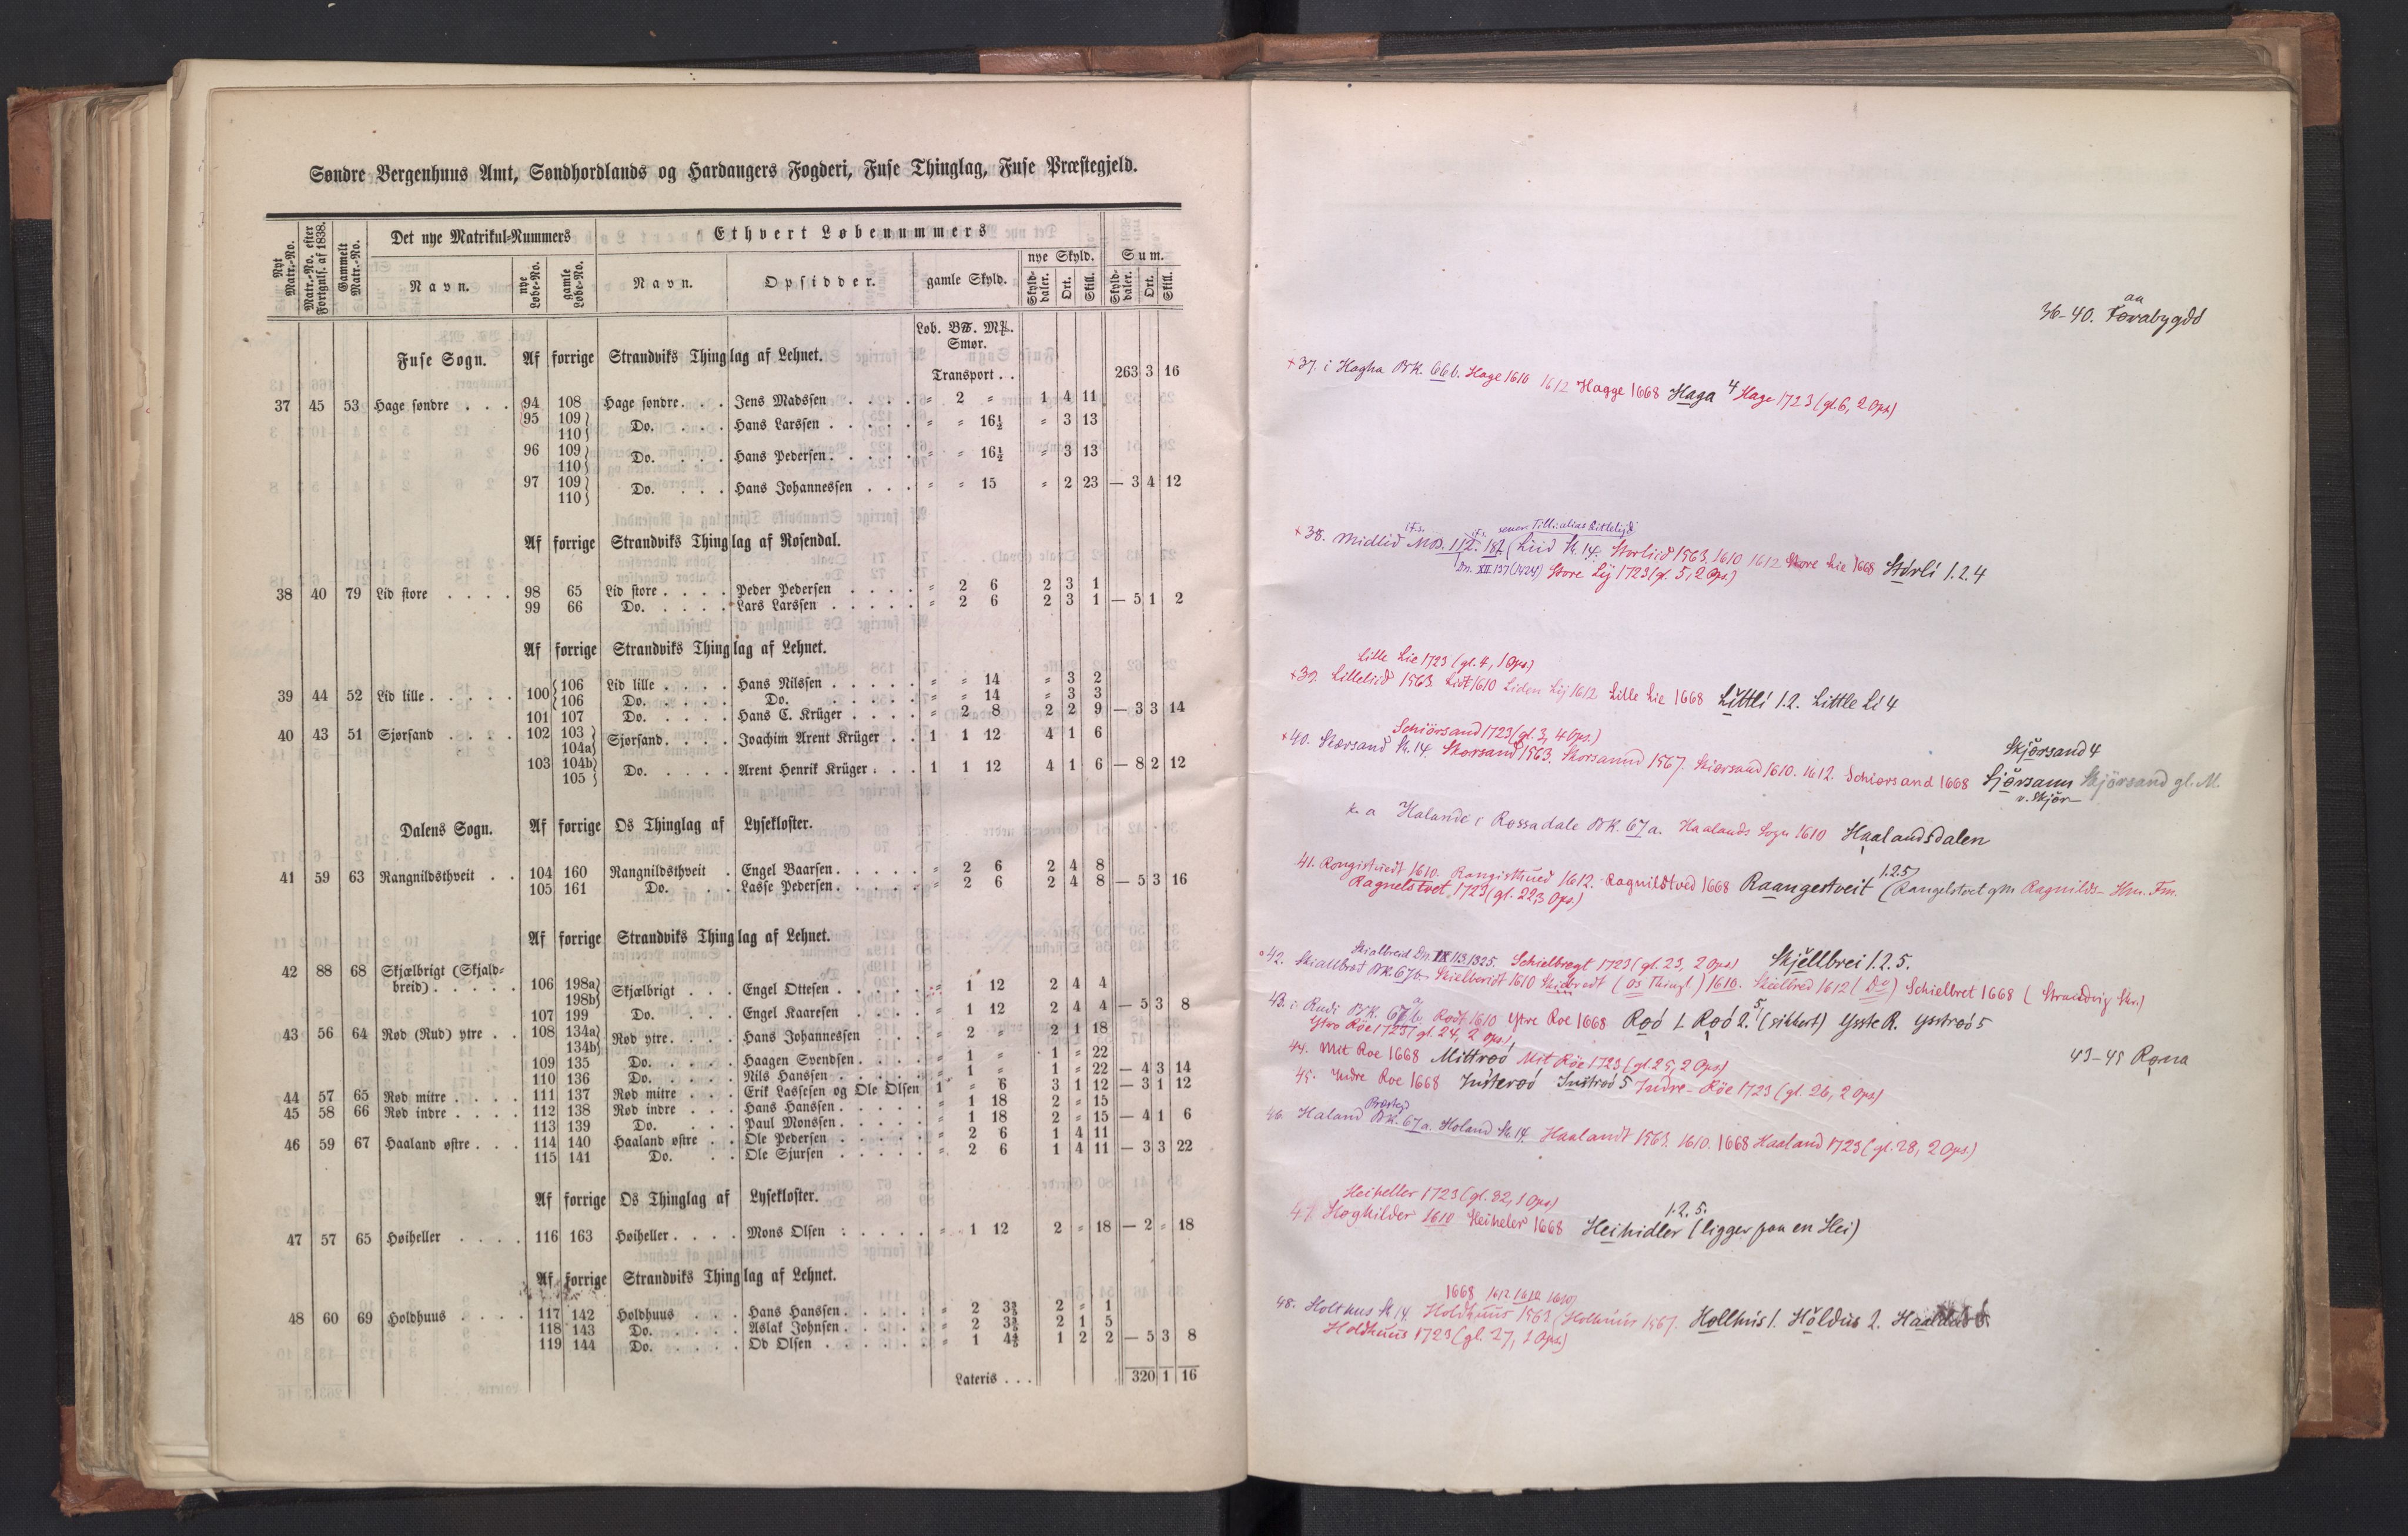 Søndre Bergenhuus Amt, Søndhordlands og Hardangers Fogderi, Fuse Thinglag, Fuse Præstegjeld.
Nyt Matr.-No. Matr.-No. efter Fortgnls. af 1838. Gammelt Matr.-No. Det nye Matrikul-Nummers Ethvert Løbenummers
Navn. nye Løbe-No. gamle Løbe-No. Navn. Opsidder. gamle Skyld. nye Skyld. Sum.
Skylddaler. Ort. Skill. Skylddaler. Ort. Skill.
Løb. B℔. M℔.
Smør.
Fuse Sogn. Af forrige Strandviks Thinglag af Lehnet.
Transport . . 263 3 16
37 45 53 Hage søndre . . . 94 108 Hage søndre. . . Jens Madssen . . . . = 2 = 1 4 11
95 109 110 Do. . . . Hans Larssen . . . . . = = 16½ = 3 13
96 109 110 Do. . . . Hans Pedersen. . . . . = = 16½ = 3 13
97 109 110 Do. . . . Hans Johannessen . . . = = 15 = 2 23 — 3 4 12
Af forrige Strandviks Thinglag af Rosendal.
38 40 79 Lid store . . . . 98 65 Lid store . . . . Peder Pedersen . . . . = 2 6 2 3 1
99 66 Do. . . . . Lars Larssen . . . . . = 2 6 2 3 1 — 5 1 2
Af forrige Strandviks Thinglag af Lehnet.
39 44 52 Lid lille . . . . . 100 106 Lid lille . . . . Hans Nilssen . . . . . = = 14 = 3 2
106 Do. . . . . Do. . . . . . = = 14 = 3 3
101 107 Do. . . . . Hans C. Krüger . . . . = 2 8 2 2 9 — 3 3 14
40 43 51 Sjørsand . . . . 102 103 104a Sjørsand. . . . Joachim Arent Krüger . . 1 1 12 4 1 6
103 104b 105 Do. . . . . Arent Henrik Krüger . . . 1 1 12 4 1 6 — 8 2 12
Dalens Sogn. Af forrige Os Thinglag af Lysekloster.
41 59 63 Rangnildsthveit . . 104 160 Rangnildsthveit . Engel Baarsen. . . . . = 2 6 2 4 8
105 161 Do. . . Lasse Pedersen. . . . . = 2 6 2 4 8 — 5 3 16
Af forrige Strandviks Thinglag af Lehnet.
42 88 68 Skjælbrigt (Skjaldbreid) . . . . . 106 198a 198b Skjælbrigt . . . Engel Ottesen . . . . . = 1 12 2 4 4
107 199 Do. . . . Engel Kaaresen . . . . = 1 12 2 4 4 — 5 3 8
43 56 64 Rød (Rud) ytre . . 108 134a 134b Rød ytre. . . . Hans Johannessen . . . = 2 = 2 1 18
109 135 Do. . . . . Haagen Svendsen. . . . = 1 = 1 = 22
110 136 Do. . . . . Nils Hanssen . . . . . = 1 = 1 = 22 — 4 3 14
44 57 65 Rød mitre . . . . 111 137 Rød mitre . . . Erik Lassesen og Ole Olsen 1 = 6 3 1 12 — 3 1 12
45 58 66 Rød indre . . . . 112 138 Rød indre . . . Hans Hanssen. . . . . = 1 18 2 = 15
113 139 Do. . . . Paul Monssen. . . . . = 1 18 2 = 15 — 4 1 6
46 59 67 Haaland østre . . . 114 140 Haaland østre . . Ole Pedersen . . . . . = 2 6 1 4 11
115 141 Do. . . Ole Sjursen . . . . . = 2 6 1 4 11 — 3 3 22
Af forrige Os Thinglag af Lysekloster.
47 57 65 Høiheller . . . . 116 163 Høiheller . . . . Mons Olsen . . . . . = 1 12 2 = 18 — 2 = 18
Af forrige Strandviks Thinglag af Lehnet.
48 60 69 Holdhuus . . . . 117 142 Holdhuus . . . Hans Hanssen. . . . . = 2 3⅗ 2 = 1
118 143 Do. . . . . Aslak Johnsen . . . . . = 2 3⅗ 2 1 5
119 144 Do. . . . . Od Olsen . . . . . . = 1 4⅘ 1 2 2 — 5 3 8
Lateris . . . 320 1 16
36-40.
37. i Hagha BK. 66b. Hage 1610 1612 Hagge 1668 Haga 4 Hage 1723 (gl. 6, 2 Ops.)
38. Midlid 187 (Liid St. 14. Storliid 1563. 1610 1612 Store Lie 1668 Stórli 1.2.4
DN. XII. 137 (1424) Store Lij 1723 (gl. 5, 2 Ops.)
Lille Lie 1723 (gl. 4, 1 Ops.)
39. Lilleliid 1563. Lidt 1610 Liden Lij 1612 Lille Lie 1668 Littli 1.2. Little Li 4
Schiörsand 1723 (gl. 3, 4 Ops.)
Skjörsand 4
40. Skorsand St. 14. Skorsand 1563. Skorsannd 1567. Skiørsand 1610. 1612. Schiørsand 1668 Sjörsann Skjörsand gl. M.
v. Skjör-
k. a Halande i Rossadale BK. 67a. Haalands Sogn 1610 Haalandsdalen
1.2.5
41. Rongistuedt 1610. Rangisthued 1612. Ragnildtved 1668 Raangestveit (Rangelstvet gm Ragnilds- Hm. Fm.
Ragnelstvet 1723 (gl. 22, 3 Ops.)
Skialbreid Dn. IX 113 1325. Schielbregt 1723 (gl. 23, 2 Ops.) Skjellbrei 1.2.5.
42. Skialbrot BK. 67b. Skielbreidt 1610 (Os Thingl.) 1610. Skielbred 1612 (Do) Schielbret 1668 (Strandvig Skr.)
43. i Rudi BK. 67b Rødt 1610 Ytre Roe 1668 Roó 1. Roó 2. 5 (sikkert) Ysste R. Ysstroó 5
Ytre Röe 1723 (gl. 24, 2 Ops.)
44. Mit Roe 1668 Mittroó Mit Röe 1723 (gl. 25, 2 Ops.)
43-45 Roena
45. Indre Roe 1668 Insteroó Instroó 5 Indre-Röe 1723 (gl. 26, 2 Ops.)
46. Haland BK. 67a. Holand St. 14. Haalandt 1563. 1610. 1668 Haaland 1723 (gl. 28, 2 Ops.)
Heiheller 1723 (gl. 32, 1 Ops.)
1.2.5.
47. Høghilder 1610 Heiheler 1668 Heihidler (ligger paa en Hei)
1668 1612 1610
48. Holthus St. 14. Holdhuus 1563 (Holthuus 1567. Hollhus 1. Höldus 2.
Holdhuus 1723 (gl. 27, 3 Ops.)